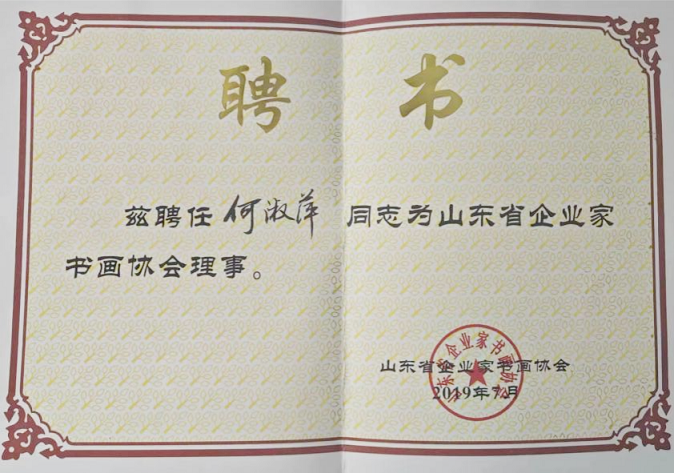 聘书
兹聘任何淑萍同志为山东省企业家
书画协会理事。
山东省企业家书画协会
2019年7月
山东省企业家书画协会